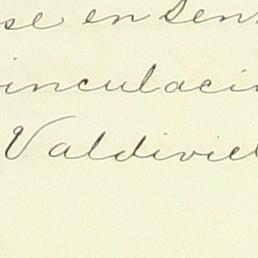 se en Sen
inculaci
Valdivie